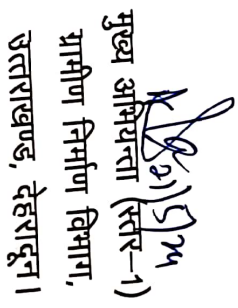 मुख्य अभियन्ता (स्तर-1)
ग्रामीण निर्माण विभाग,
उत्तराखण्ड, देहरादून।